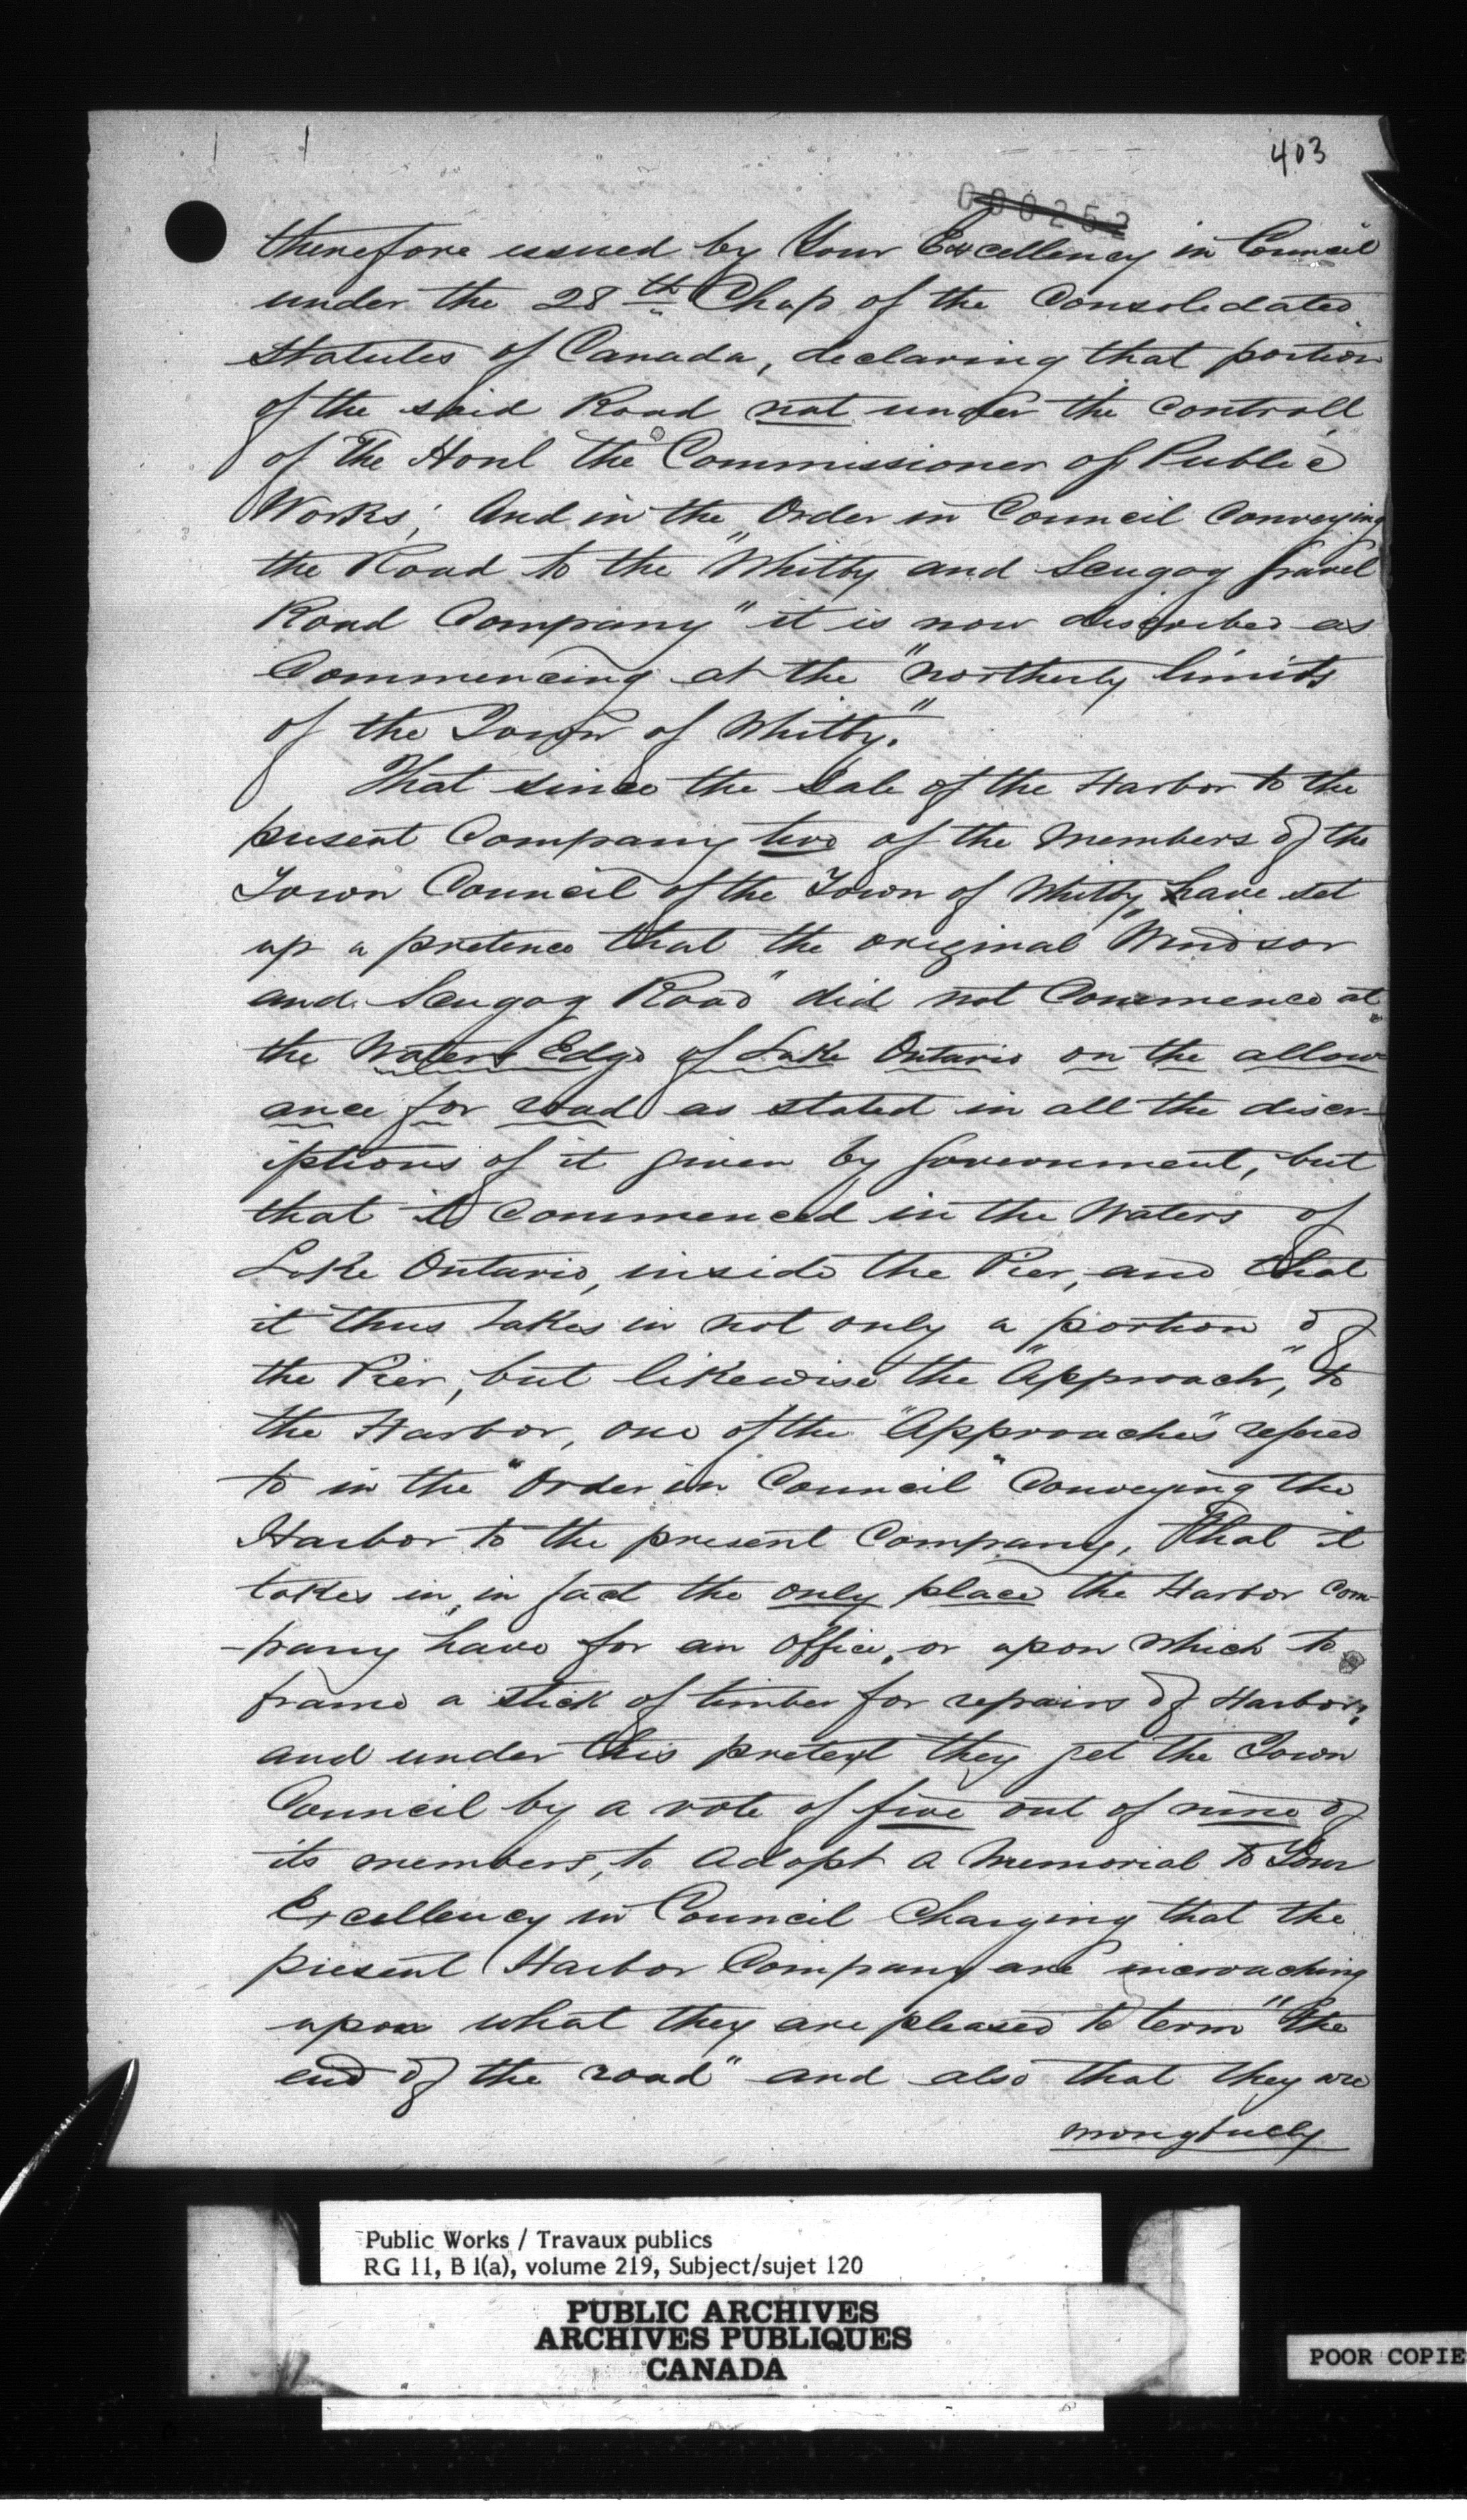 403
000252
therefore issued by Your Excellency in Council
under the 28th Chap of the Consolidated
Statutes of Canada, declaring that portion
of the said Road not under the controll
of The Honl the Commissioner of Public
Works; And in the Order in Council Conveying
the Road to the "Whitby and Scugog Gravel
Road Company" it is now discribed as
Commencing at the "northerly limits
of the Town of Whitby."
That since the Sale of the Harbor to the
present Company two of the Members of the
Town Council of the Town of Whitby have set
up a pretence that the original "Windsor
and Scugog Road" did not Commence at
the Waters Edge of Lake Ontario on the allow-
ance for road as stated in all the discr-
iptions of it given by Government, but
that it Commenced in the Waters of
Lake Ontario, inside the Pier, and that
it thus takes in not only a portion of
the Pier, but likewise the "Approach," to
the Harbor, one of the "Approaches" refered
to in the "Order in Council" Conveying the
Harbor to the present Company, That it
takes in, in fact the only place the Harbor Com-
-pany have for an office, or upon which to
frame a stick of timber for repairs of Harbor,
and under this pretext they get the Town
Council by a vote of five out of nine of
its members, to adopt a Memorial to Your
Excellency in Council Charging that the
present Harbor Company are incroaching
upon what they are pleased to term "the
end of the road" and also that they are
wrongfully
Public Works / Travaux publics
RG 11, B 1(a), volume 219, Subject/sujet 120
PUBLIC ARCHIVES
ARCHIVES PUBLIQUES
CANADA
POOR COPIE